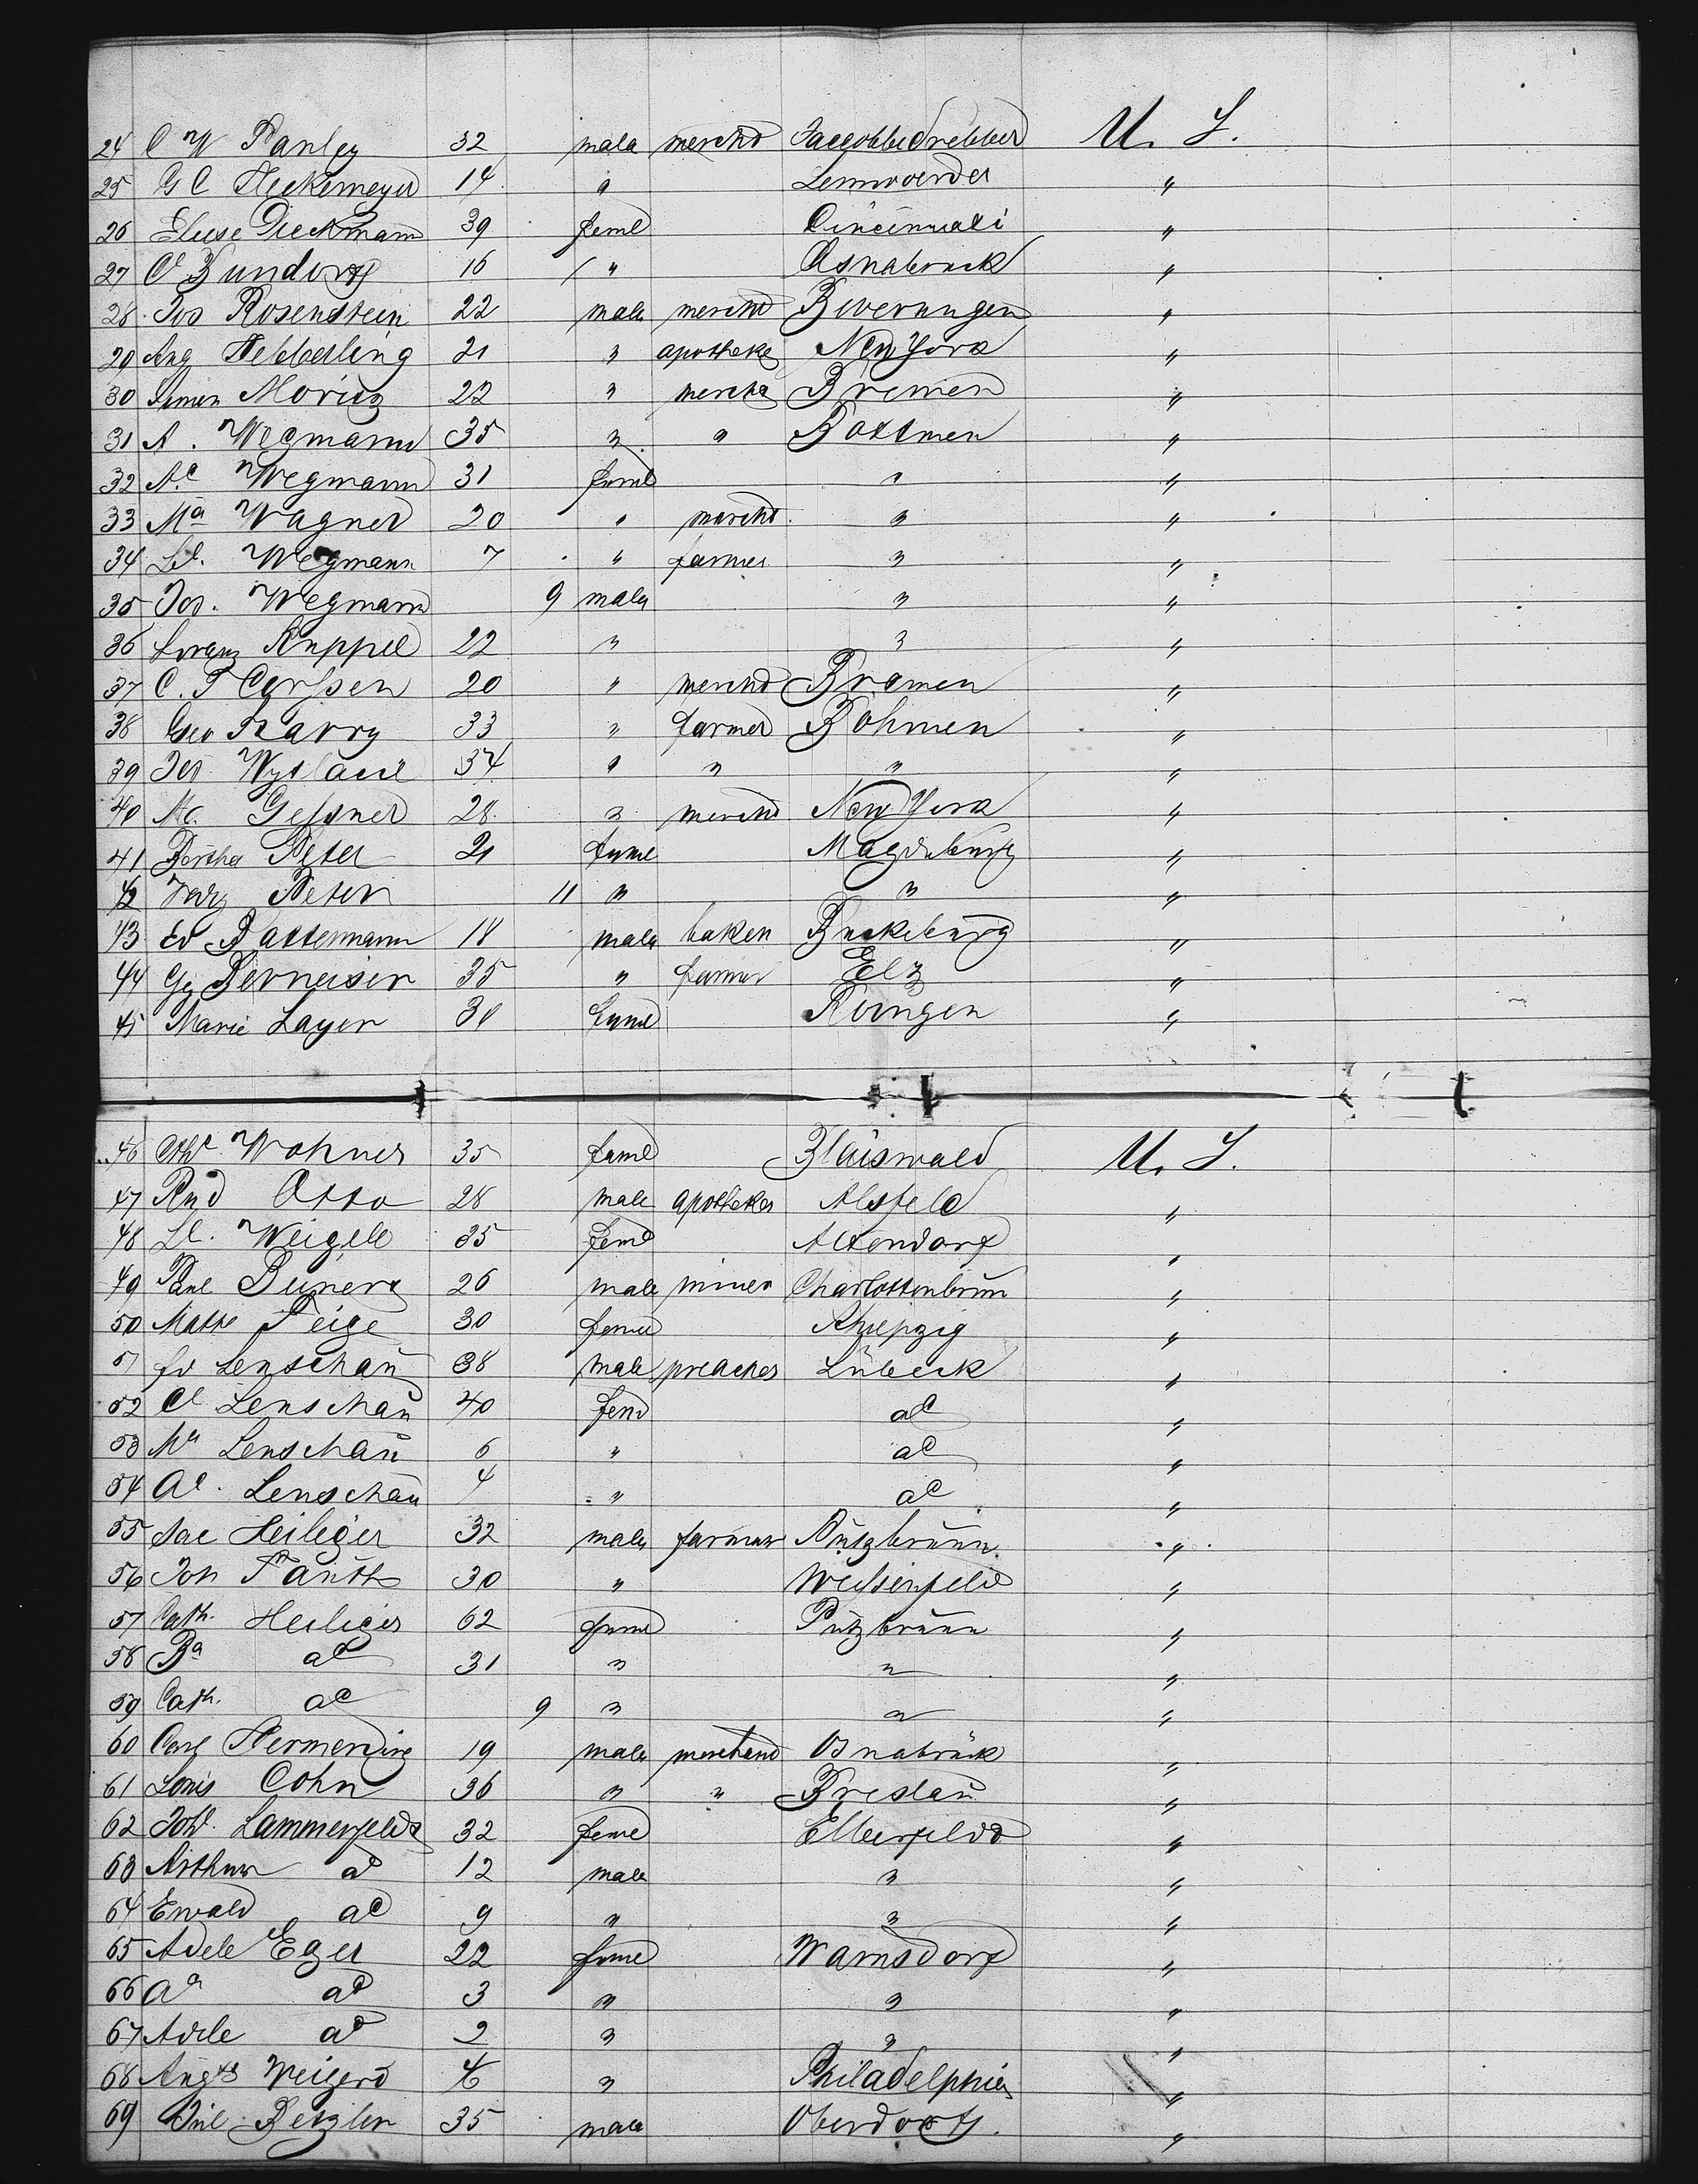 24 C W Panley 32 male merchd Jaccobbedrebber U. S.
25 G C Heckemeyer 14 " Lemwerder "
26 Eluse Dieckmann 39 feml Cincinnati "
27 C Bundorf 16 " Osnabruck "
28 Jos Rosenstein 22 male merchd Beverungen "
29 Aug Hebbeling 21 " apotheke New York "
30 Simon Moritz 22 " mercha Bremen "
31 A. Wegmann 35 " " Bottmen "
32 Ac Wegmann 31 feml " "
33 Ma Wagner 20 " merchd " "
34 Ld. Wegmann 7 " farmer " "
35 Jos. Wegmann 9 male " "
36 Franz Ruppel 22 " " "
37 C. F Carssen 20 " merchd Bramen "
38 Geo Karry 33 " farmer Bohmen "
39 Jos 34 " " " "
40 Mc. Gessner 28 " merchd New York "
41 Bertha Peter 21 feme Magdeburg "
42 Peter 11 " " "
43 Ed Battermann 18 male baken Buckeburg "
44 Gg Berneiser 35 " farmer Elz "
45 Marie Layer 30 feml "
46 Wohner 35 feml Blaiswald U. S.
47 Rud Otto 28 male apotheker Alsfeld "
48 Ll. Weigele 35 feml Altendorf "
49 Paul 26 male miner Charlottenbrun "
50 Mathe Feige 30 femel "
51 Fr Lenschaŭ 38 male preacher Lübeck "
52 Cl Lenschaŭ 40 femd ad "
53 Ma Lenschaŭ 6 " ad "
54 Ad. Lenschaŭ 4 " ad "
55 Jac Heiliger 32 male farmer Pützbrunn "
56 Joh Fauth 30 " Weissenfeld "
57 Cath. Heiliger 62 femel Pützbrunn "
58 Ba ad 31 " " "
59 Cath. ad 9 " " "
60 Carl Hermerding 19 male merchand Osnabrück "
61 Louis Cohn 36 " " Breslaŭ "
62 Joh. Lammerfeldt 32 feml Elberfeldd "
63 Arthur ad 12 male " "
64 Ewald ad 9 " " "
65 Adele Eger 22 feml Warnsdorf "
66 Aa ad 3 " " "
67 Adele ad 2 " " "
68 Augts Weigerd " Philadelphia "
69 Jul Betzler 35 male Oberdorf. "